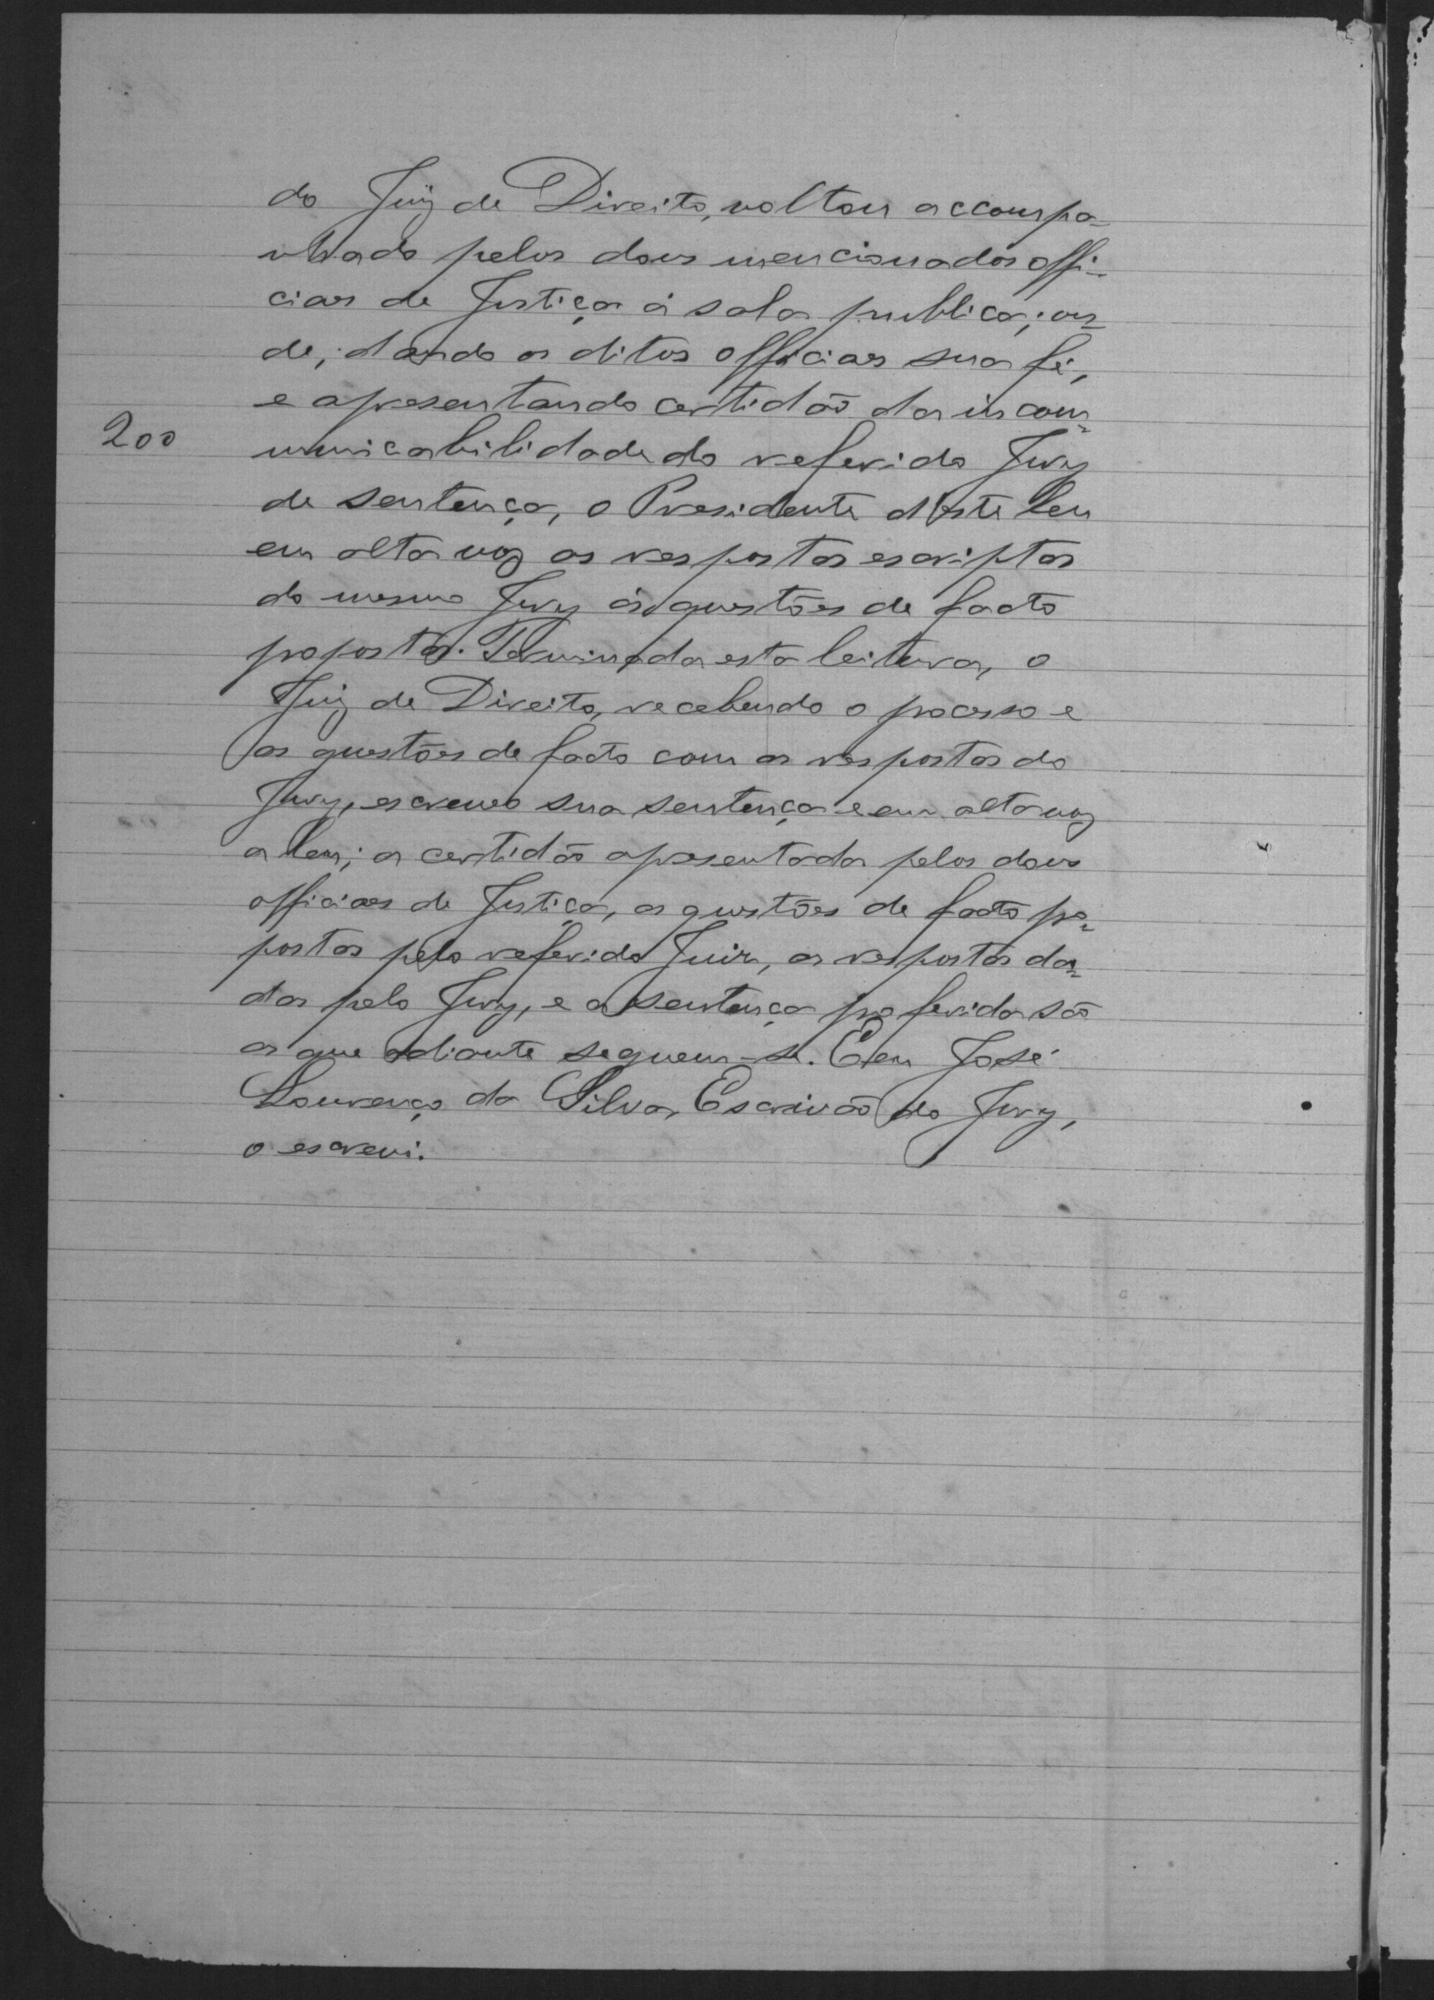 do Juiz de Direito, voltou accompa-
nhado pelos dous mencionados offi-
ciaes de Justiça á sala publica; on-
de, dando os ditos officiaes sua fé,
e apresentando certidão da incom-
200
municabilidade do referido Jury
de sentença, o Presidente d'este leu
em alta voz as respostas escriptas
do mesmo Jury ás questões de facto
propostas. Terminada esta leitura, o
Juiz de Direito, recebendo o processo e
as questões de facto com as respostas do
Jury, escreveo sua sentença e em alta voz
a leu; a certidão apresentada pelos dous
officiaes de Justiça, as questões de facto pro-
postas pelo referido Juiz, as respostas da-
das pelo Jury, e a sentença proferida são
as que adiante seguem-se. E eu José
Lourenço da Silva, Escrivão do Jury,
o escrevi.